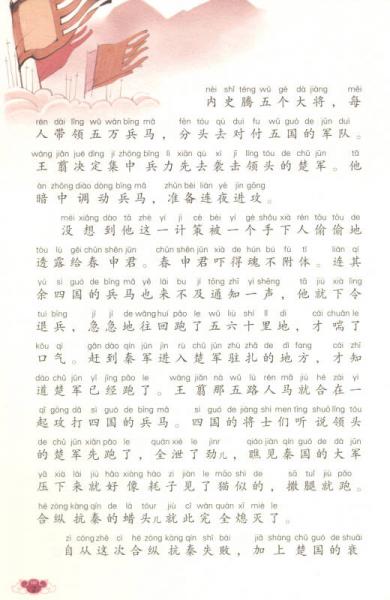 nèi shǐ téng wǔ gè dà jiàng měi
内史腾五个大将，每
rén dài lǐng wǔ wàn bīng mǎ fēn tóu qù duì fu wǔ guó de jūn duì
人带领五万兵马，分头去对付五国的军队。
wáng jiǎn jué dìng jí zhōng bīng lì xiān qù xí jī lǐng tóu de chǔ jūn tā
王翦决定集中兵力先去袭击领头的楚军。他
àn zhōng diào dòng bīng mǎ zhǔn bèi lián yè jìn gōng
暗中调动兵马，准备连夜进攻。
méi xiǎng dào tā zhè yí jì cè bèi yí gè shǒu xià rén tōu tōu de
没想到他这一计策被一个手下人偷偷地
tòu lù gěi chūn shēn jūn chūn shēn jūn xià de hún bú fù tǐ lián qí
透露给春申君。春申君吓得魂不附体。连其
yú sì guó de bīng mǎ yě lái bu jí tōng zhī yì shēng tā jiù xià lìng
余四国的兵马也来不及通知一声，他就下令
tuì bīng jí jí de wǎng huí pǎo le wǔ liù shí lǐ dì cái chuǎn le
退兵，急急地往回跑了五六十里地，才喘了
kǒu qì gǎn dào qín jūn jìn rù chǔ jūn zhù zhā de dì fang cái zhī
口气。赶到秦军进入楚军驻扎的地方，才知
dào chǔ jūn yǐ jīng pǎo le wáng jiǎn nà wǔ lù rén mǎ jiù hé zài yì
道楚军已经跑了。王翦那五路人马就合在一
qǐ gōng dǎ sì guó de bīng mǎ sì guó de jiàng shì men tīng shuō lǐng tóu
起攻打四国的兵马。四国的将士们听说领头
de chǔ jūn xiān pǎo le quán xiè le jìnr qiáo jiàn qín guó de dà jūn
的楚军先跑了，全泄了劲儿，瞧见秦国的大军
yā xià lái jiù hǎo xiàng hào zi jiàn le māo shì de sā tuǐ jiù pǎo
压下来就好像耗子见了猫似的，撒腿就跑。
hé zòng kàng qín de là tóur jiù cǐ wán quán xī miè le
合纵抗秦的蜡头儿就此完全熄灭了。
zì cóng zhè cì hé zòng kàng qín shī bài jiā shàng chǔ guó de shuāi
自从这次合纵抗秦失败，加上楚国的衰